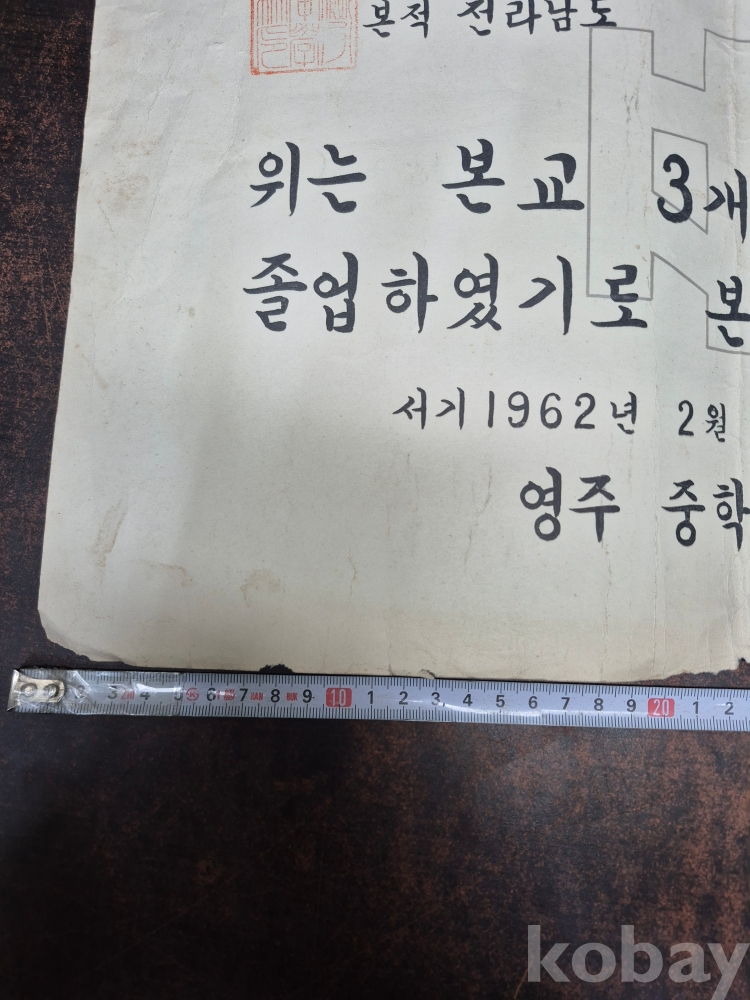 본적 전라남도
위는 본교 3개
졸업하였기로 본
서기 1962년 2월
영주 중학
3 4 5 6 7 8 9 10 1 2 3 4 5 6 7 8 9 20 1 2
kobay